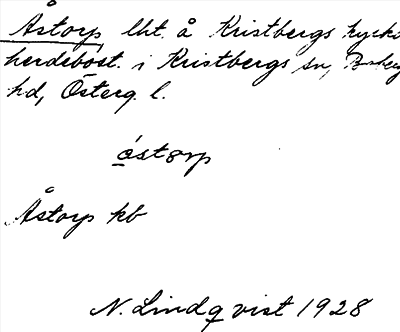 Åstorp lht. å Kristbergs kyrko
herdebost. i Kristbergs sn,
hd, Österg. l.
óstorp
Åstorp kb
N. Lindqvist 1928